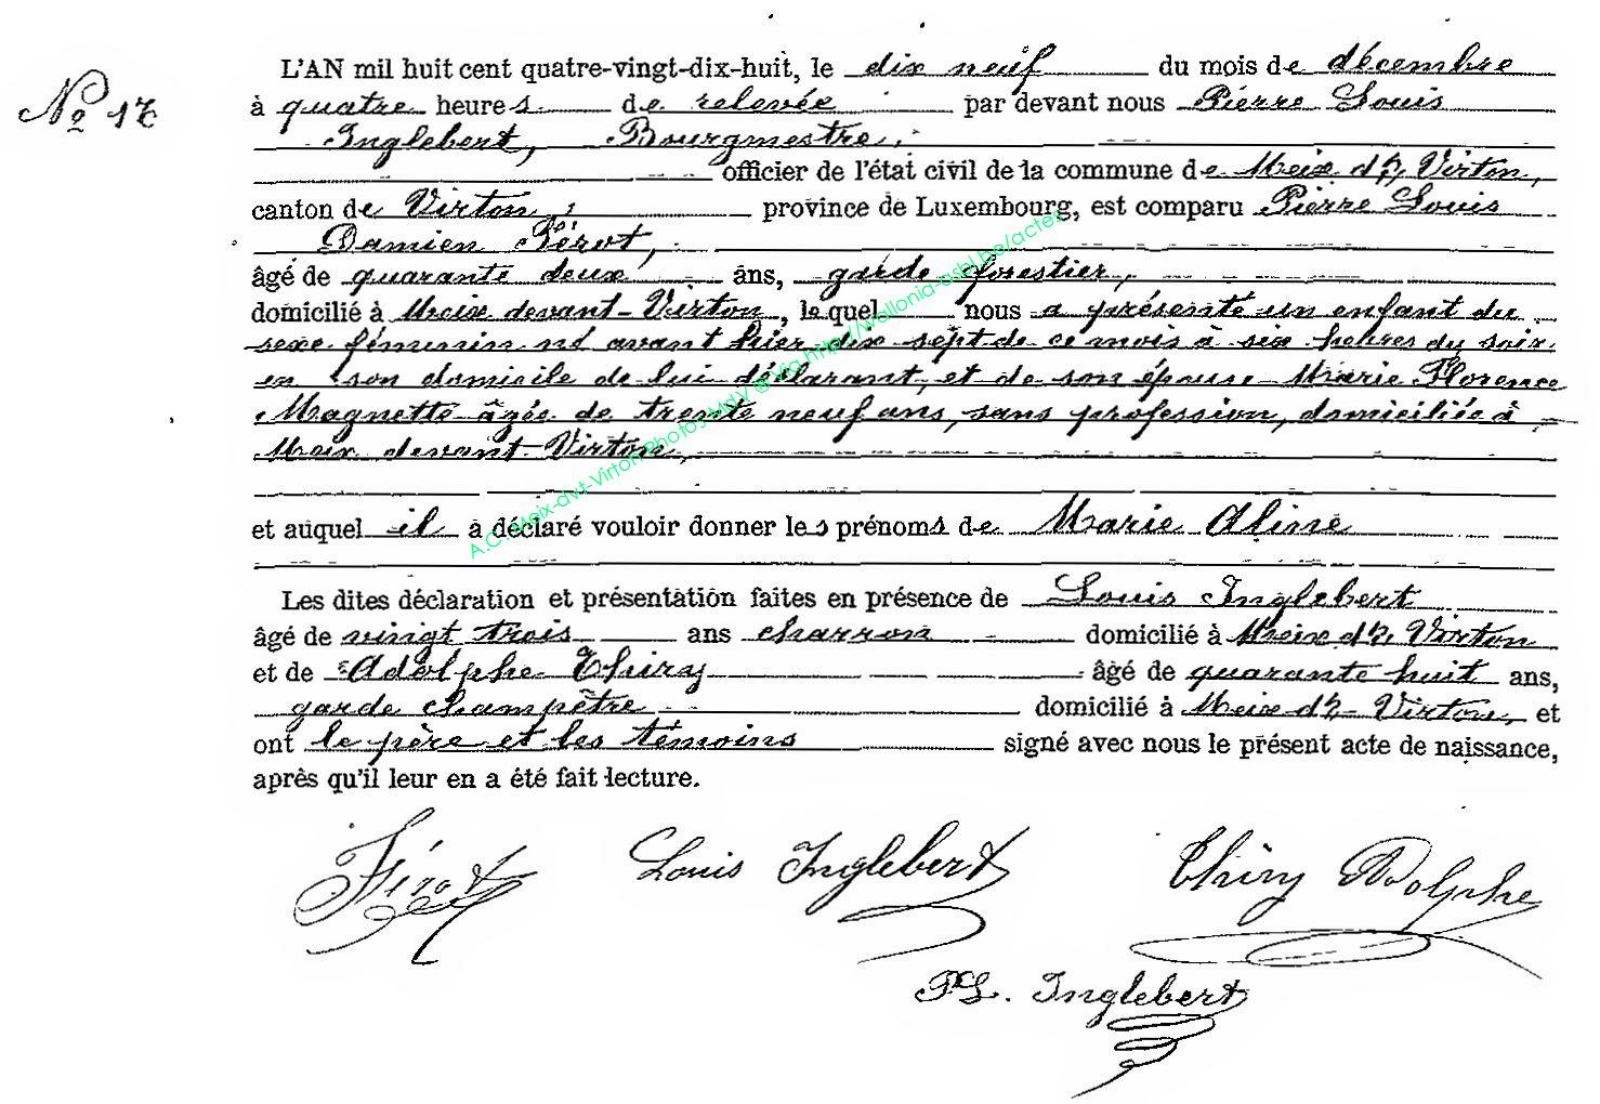 L'AN mil huit cent quatre-vingt-dix-huit, le dix neuf du mois de décembre
No 17
à quatre heures de relevée par devant nous Pierre Louis
Inglebert, Bourgmestre,
officier de l'état civil de la commune de Meix dt, Virton,
canton de Virton, province de Luxembourg, est comparu Pierre Louis
Damien Férot,
âgé de quarante deux ans, garde forestier,
domicilié à Meix devant-Virton, lequel nous a présenté un enfant du
sexe féminin né avant hier dix sept de ce mois à six heures du soir
en son domicile de lui déclarant, et de son épouse Marie Florence
Magnette âgée de trente neuf ans, sans profession, domiciliée à
Meix devant-Virton,
et auquel il a déclaré vouloir donner les prénoms de Marie Aline
Les dites déclaration et présentation faites en présence de Louis Inglebert
âgé de vingt trois ans charron domicilié à Meix dt, Virton
et de Adolphe Thiry âgé de quarante huit ans,
garde champêtre domicilié à Meix dt, Virton, et
ont le père et les témoins signé avec nous le présent acte de naissance,
après qu'il leur en a été fait lecture.
Férot Louis Inglebert Thiry Adolphe
PL. Inglebert
A.C. Meix-dvt-Virton Photos MdV @ Via http://wallonia-asbl.be/actes